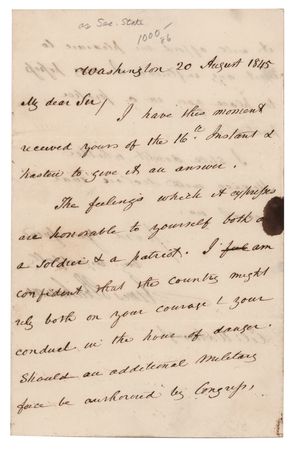 as Sec. State
1000/86
Washington 20 August 1845
My dear Sir/
I have this moment
received yours of the 16th Instant &
hasten to give it an answer.
The feelings which it expresses
are honorable to yourself both as
a soldier & a patriot. I feel am
confident that the Country might
rely both on your courage & your
conduct in the hour of danger.
Should an additional Military
force be authorised by Congress,